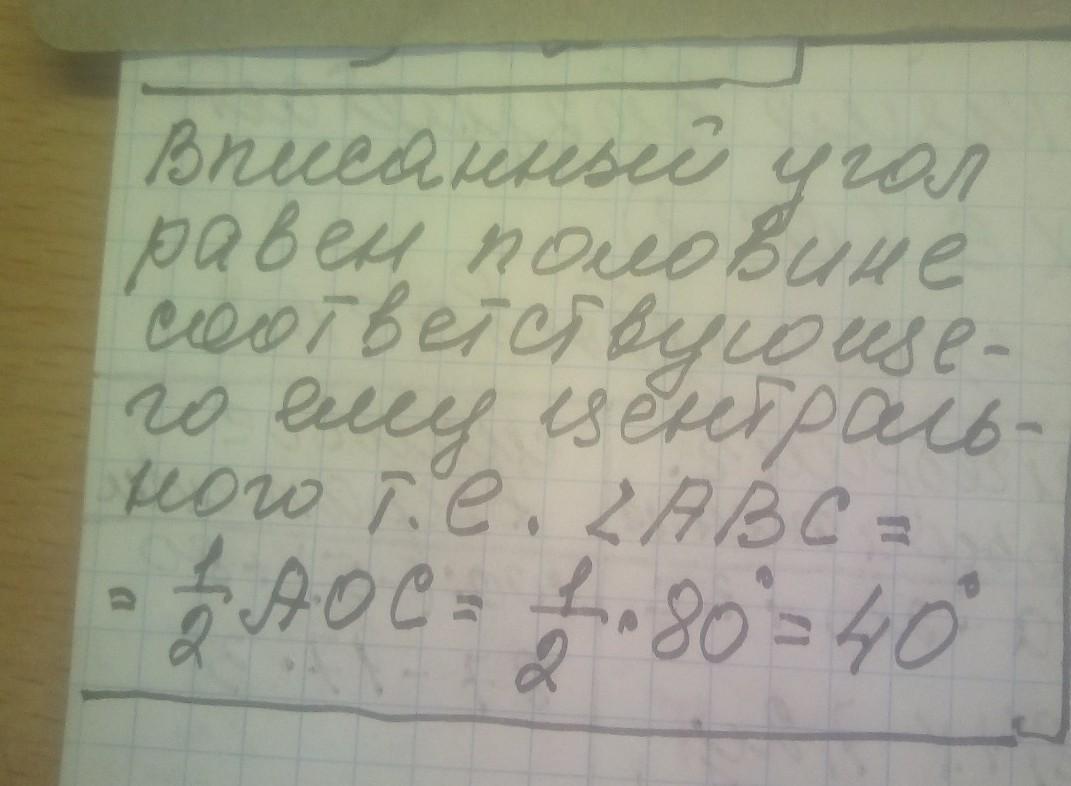 Вписанный угол
равен половине
соответствующе-
го ему централь-
ного т.е. ∠ABC =
= 1/2 AOC = 1/2 · 80° = 40°